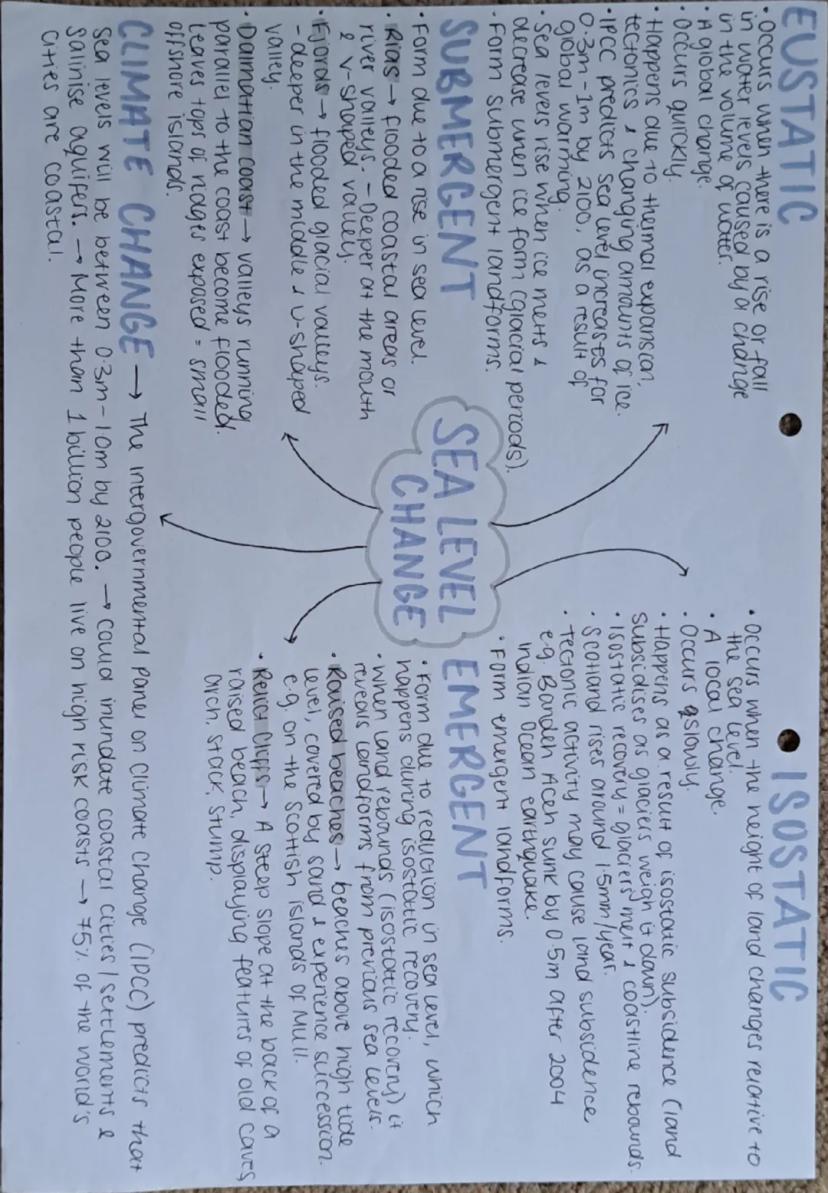 EUSTATIC
• Occurs when there is a rise or fall
in water levels caused by a change
in the volume of water.
• A global change.
• Occurs quickly.
• Happens due to thermal expansion,
tectonics & changing amounts of ice.
• IPCC predicts sea level increases for
0.3m-1m by 2100, as a result of
global warming.
• Sea levels rise when ice melts &
decrease when ice form (glacial periods).
• Form submergent landforms.
ISOSTATIC
• Occurs when the height of land changes relative to
the sea level.
• A local change.
• Occurs slowly.
• Happens as a result of isostatic subsidence (land
subsidises as glaciers weigh it down).
• Isostatic recovery = glaciers melt & coastline rebounds.
• Scotland rises around 1.5mm/year.
• Tectonic activity may cause land subsidence
e.g. Banden Aceh sunk by 0.5m after 2004
Indian Ocean earthquake.
• Form emergent landforms.
SEA LEVEL
CHANGE
SUBMERGENT
• Form due to a rise in sea level.
• Rias → flooded coastal areas or
river valleys. - Deeper at the mouth
& v-shaped valleys.
• Fjords → flooded glacial valleys.
- deeper in the middle & u-shaped
valley.
• Dalmation coast → valleys running
parallel to the coast become flooded.
Leaves tops of ridges exposed = small
offshore islands.
EMERGENT
• Form due to reduction in sea level, which
happens during isostatic recovery.
• When land rebounds (isostatic recovery) it
reveals landforms from previous sea levels.
• Raised beaches → beaches above high tide
level, covered by sand & experience succession.
e.g. on the Scottish islands of Mull.
• Relict Cliffs → A steep slope at the back of a
raised beach, displaying features of old caves,
arch, stack, stump.
CLIMATE CHANGE → The Intergovernmental Panel on Climate Change (IPCC) predicts that
sea levels will be between 0.3m-10m by 2100. → Could inundate coastal cities/settlements &
salinise aquifers. → More than 1 billion people live on high risk coasts → 75% of the world's
cities are coastal.